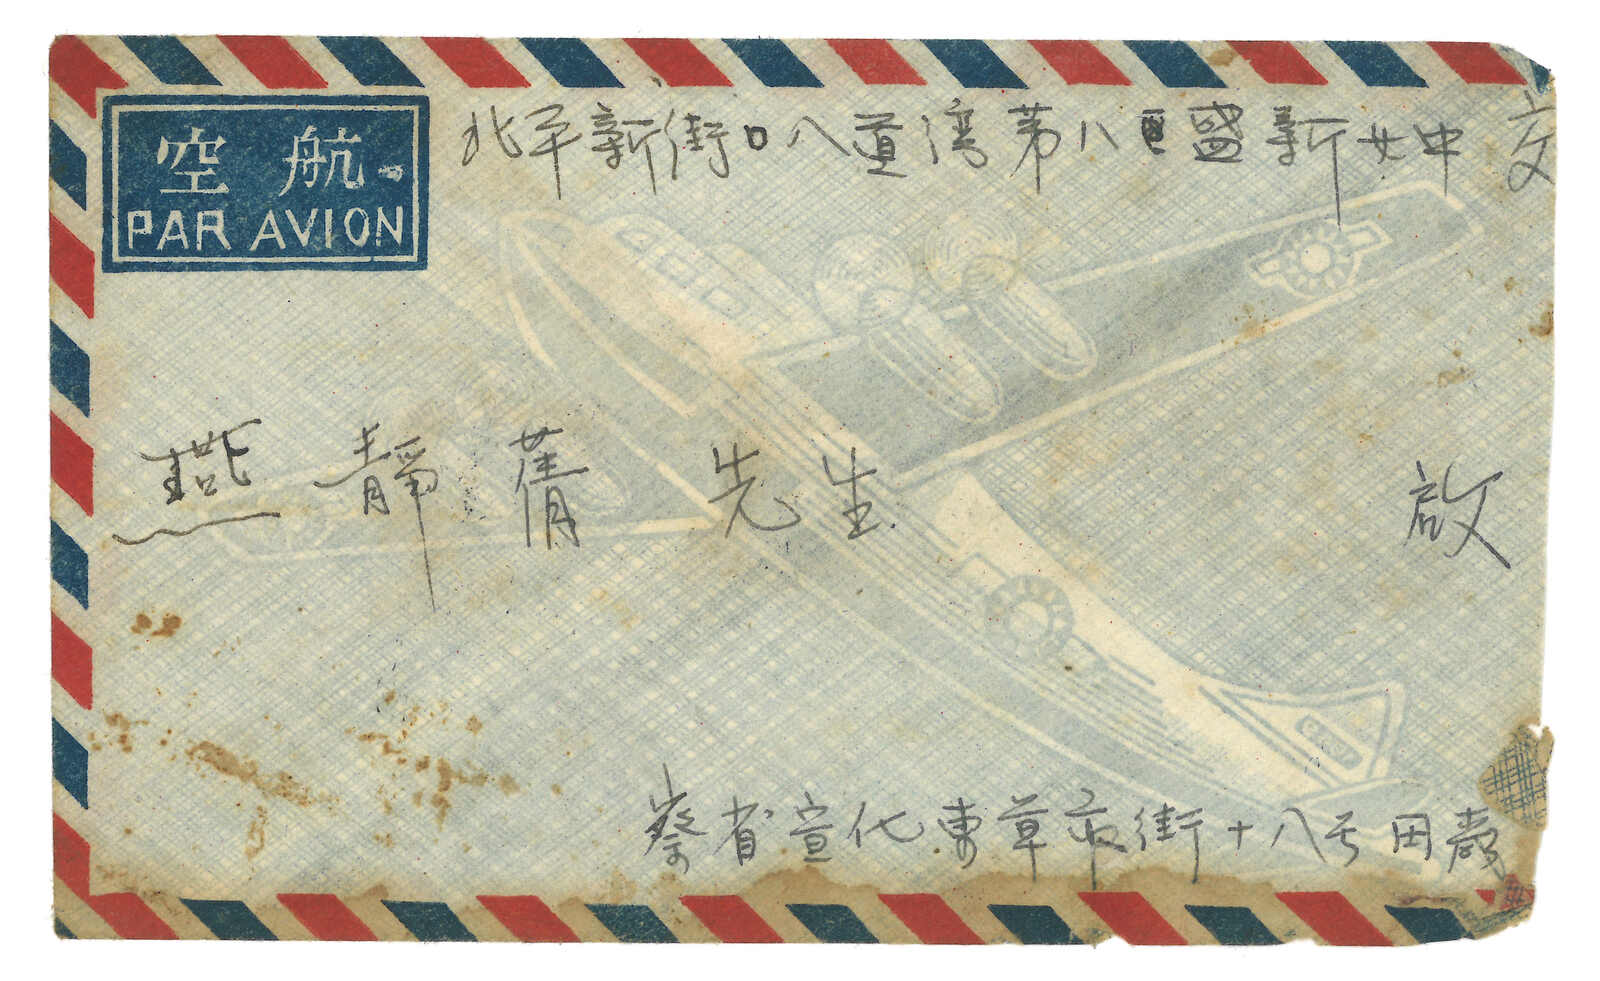 北平新街口八道湾第八區盛新女中 交
空航
PAR AVION
燕靜蒨 先生 啟
察省宣化東草市街十八号田